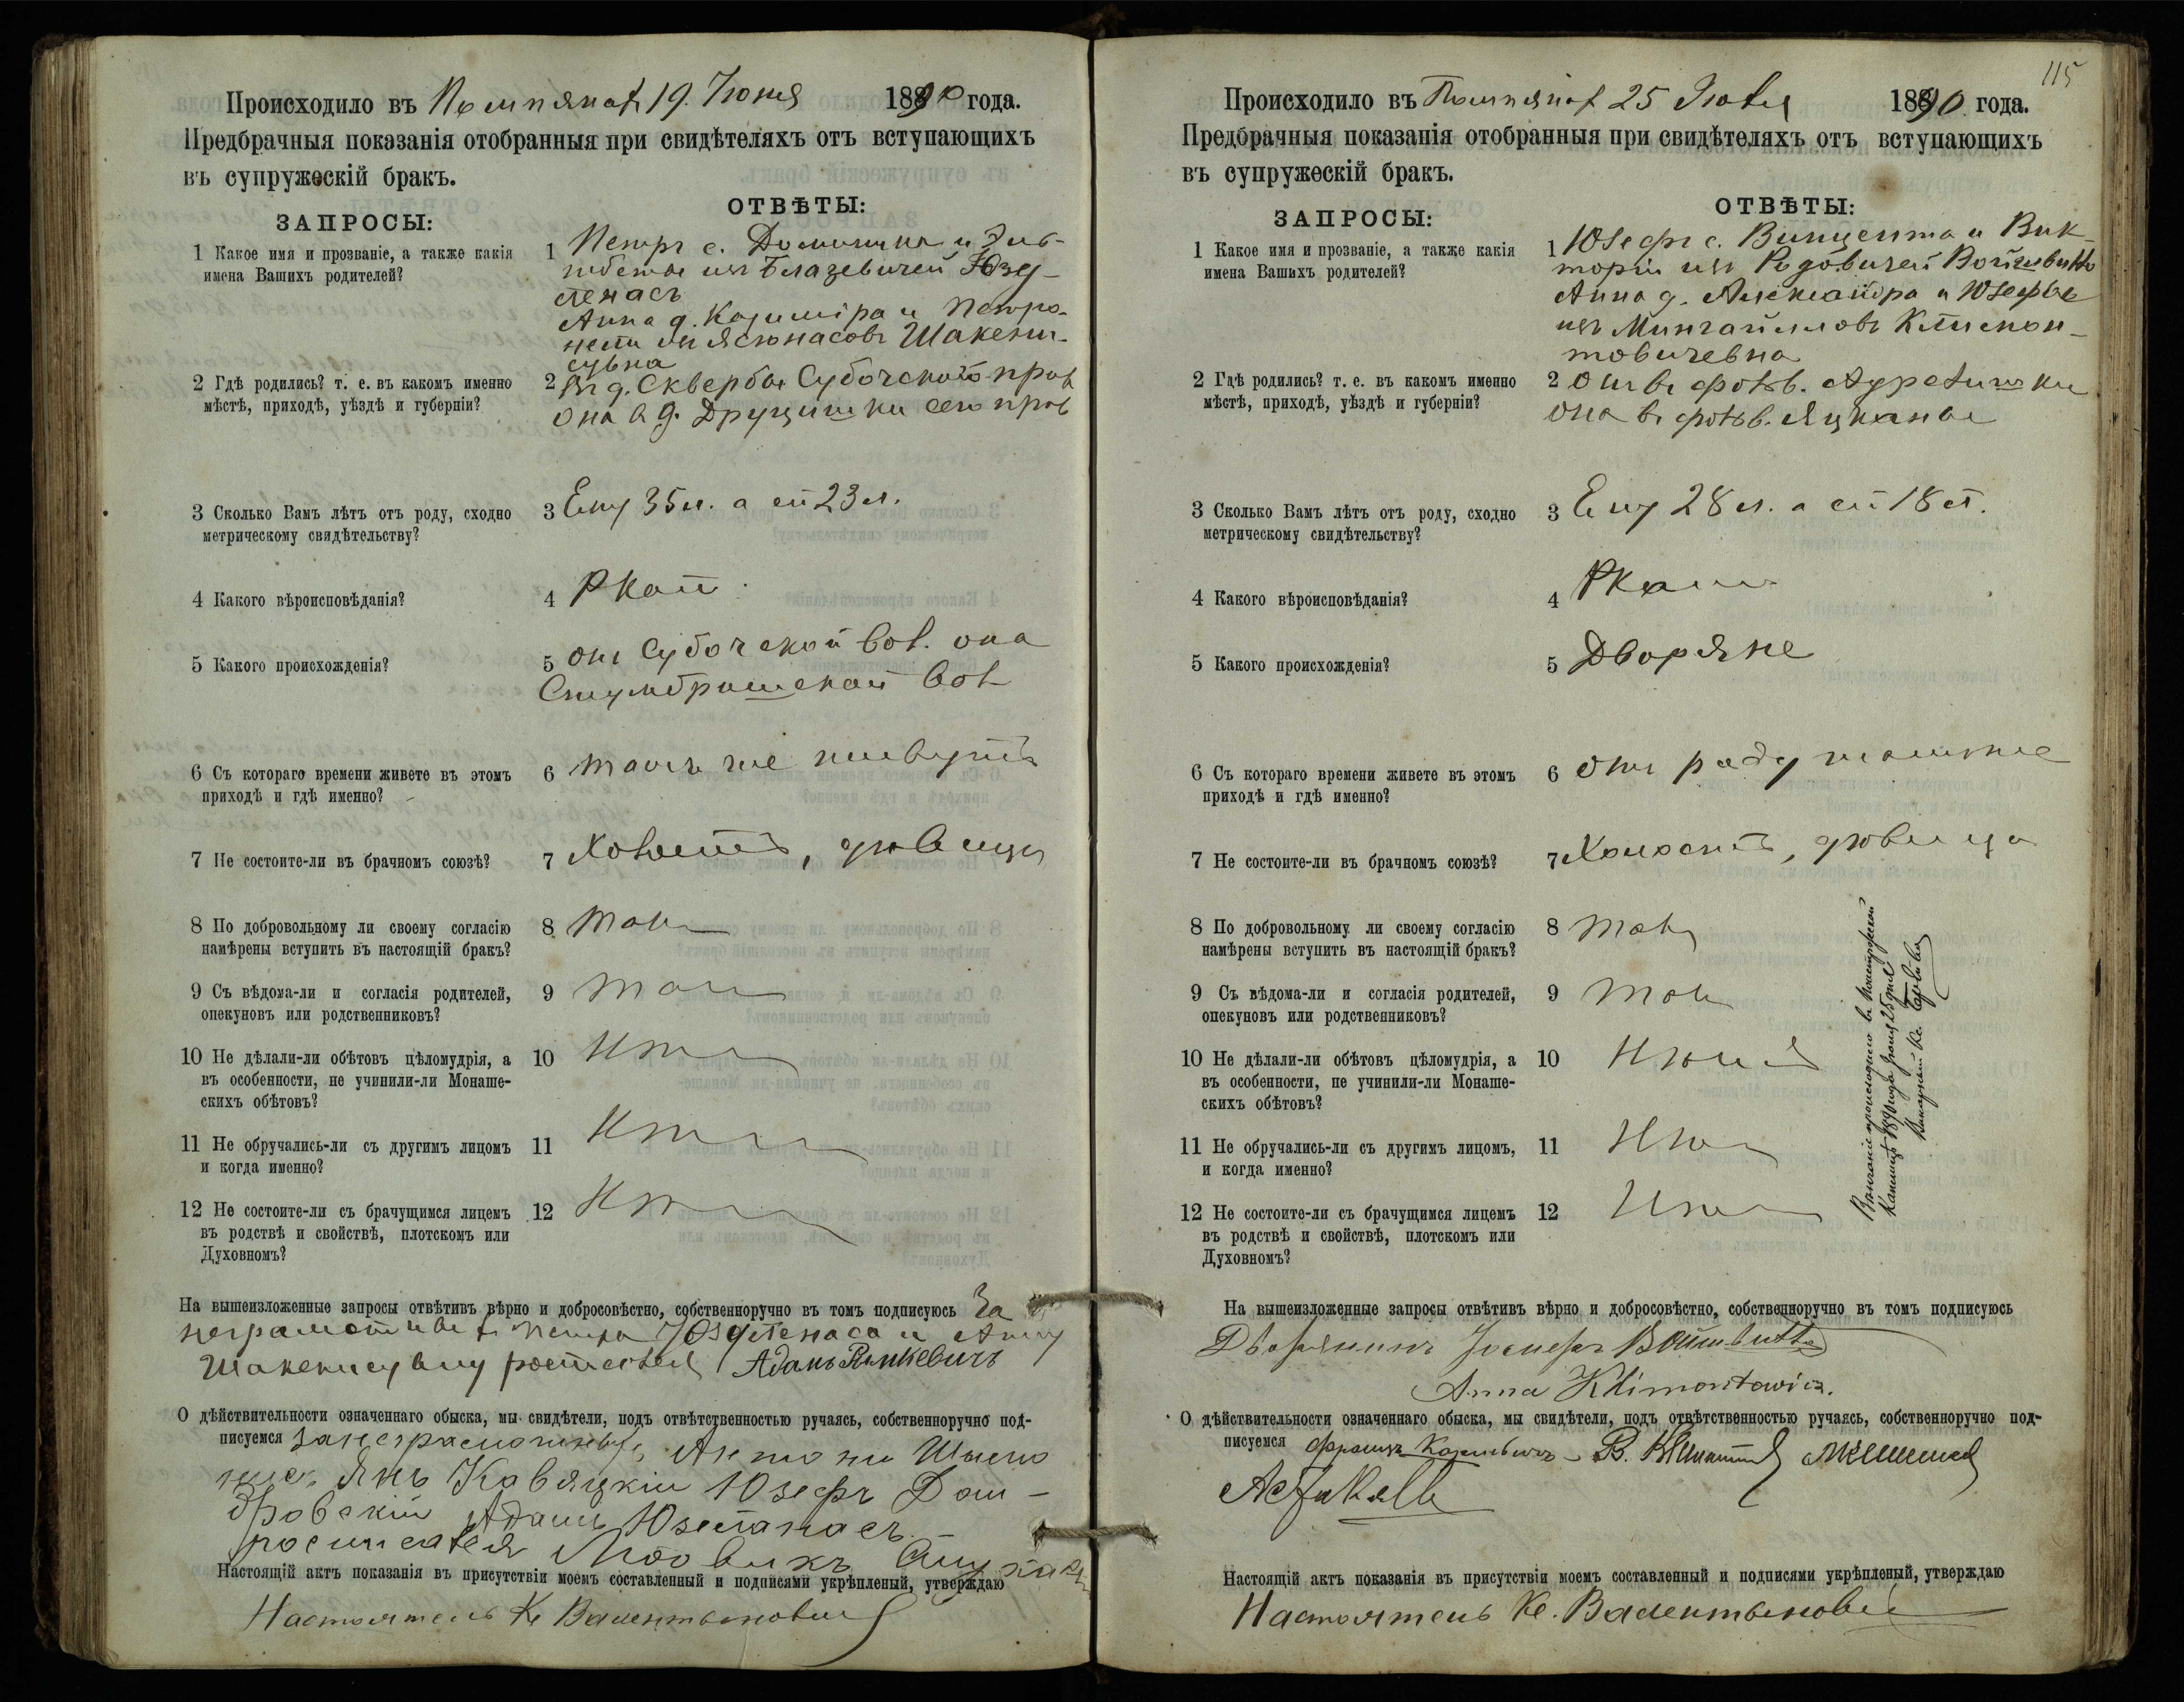 Происходило въ 19. Іюня 1890 года.
Предбрачныя показанія отобранныя при свидѣтеляхъ отъ вступающихъ
въ супружескій бракъ.
ЗАПРОСЫ:
ОТВѢТЫ:
1 Какое имя и прозваніе, а также какія
имена Вашихъ родителей?
1 Петръ с. Доминика и Эль-
жбеты изъ Блажевичей Юзу-
тенасъ
Анна д. Казиміра и Петро-
нели Шакени-
сувна
2 Гдѣ родились? т. е. въ какомъ именно
мѣстѣ, приходѣ, уѣздѣ и губерніи?
2 д. Скверба Субочскаго
она в д. Друцишки сего
3 Сколько Вамъ лѣтъ отъ роду, сходно
метрическому свидѣтельству?
3 Ему 35 л. а ей 23 л.
4 Какого вѣроисповѣданія?
4 Ркат.
5 Какого происхожденія?
5 онъ Субочской вол. она
вол
6 Съ котораго времени живете въ этомъ
приходѣ и гдѣ именно?
6 тамъ же живутъ
7 Не состоите-ли въ брачномъ союзѣ?
7 Холостъ, дѣвица
8 По добровольному ли своему согласію
намѣрены вступить въ настоящій бракъ?
8 такъ
9 Съ вѣдома-ли и согласія родителей,
опекуновъ или родственниковъ?
9 такъ
10 Не дѣлали-ли обѣтовъ цѣломудрія, а
въ особенности, не учинили-ли Монаше-
скихъ обѣтовъ?
10 Нѣтъ
11 Не обручались-ли съ другимъ лицомъ
и когда именно?
11 Нѣтъ
12 Не состоите-ли съ брачущимся лицемъ
въ родствѣ и свойствѣ, плотскомъ или
Духовномъ?
12 Нѣтъ
На вышеизложенные запросы отвѣтивъ вѣрно и добросовѣстно, собственноручно въ томъ подписуюсь За
неграмотныхъ Петра Юзутенаса и Анну
Шакенисувну росписался Адамъ Ринкевичъ
О дѣйствительности означеннаго обыска, мы свидѣтели, подъ отвѣтственностью ручаясь, собственноручно под-
писуемся за неграмотныхъ, Антони
Янъ Кавяцкій Юзефъ Дом-
бровскій Адамъ Юзетанасъ
росписался
Настоящій актъ показанія въ присутствіи моемъ составленный и подписями укрѣпленый, утверждаю
Настоятель Кс Валентыновичъ
115
Происходило въ 25 1890 года.
Предбрачныя показанія отобранныя при свидѣтеляхъ отъ вступающихъ
въ супружескій бракъ.
ЗАПРОСЫ:
ОТВѢТЫ:
1 Какое имя и прозваніе, а также какія
имена Вашихъ родителей?
1 Юзефъ с. Винцента и Вик-
торіи изъ Родовичей Войшвитто
Анна д. Александра и Юзефы
изъ Мингайловъ Климон-
товичевна
2 Гдѣ родились? т. е. въ какомъ именно
мѣстѣ, приходѣ, уѣздѣ и губерніи?
2 Онъ въ фольв.
она въ фольв. Яцканы
3 Сколько Вамъ лѣтъ отъ роду, сходно
метрическому свидѣтельству?
3 Ему 28 л. а ей 18 л.
4 Какого вѣроисповѣданія?
4 Ркат
5 Какого происхожденія?
5 Дворяне
6 Съ котораго времени живете въ этомъ
приходѣ и гдѣ именно?
6 отъ роду
7 Не состоите-ли въ брачномъ союзѣ?
7 Холостъ, дѣвица
8 По добровольному ли своему согласію
намѣрены вступить въ настоящій бракъ?
8 такъ
9 Съ вѣдома-ли и согласія родителей,
опекуновъ или родственниковъ?
9 такъ
10 Не дѣлали-ли обѣтовъ цѣломудрія, а
въ особенности, не учинили-ли Монаше-
скихъ обѣтовъ?
10 Нѣтъ
11 Не обручались-ли съ другимъ лицомъ,
и когда именно?
11 Нѣтъ
12 Не состоите-ли съ брачущимся лицемъ
въ родствѣ и свойствѣ, плотскомъ или
Духовномъ?
12 Нѣтъ
Вѣнчаніе происходило въ
1890 года 25 дня
Викарный Кс.
На вышеизложенные запросы отвѣтивъ вѣрно и добросовѣстно, собственноручно въ томъ подписуюсь
Дворянинъ Іосифъ Войшвитто
Anna Klimontowicz.
О дѣйствительности означеннаго обыска, мы свидѣтели, подъ отвѣтственностью ручаясь, собственноручно под-
писуемся Францъ
Настоящій актъ показанія въ присутствіи моемъ составленный и подписями укрѣпленый, утверждаю
Настоятель Кс. Валентыновичъ